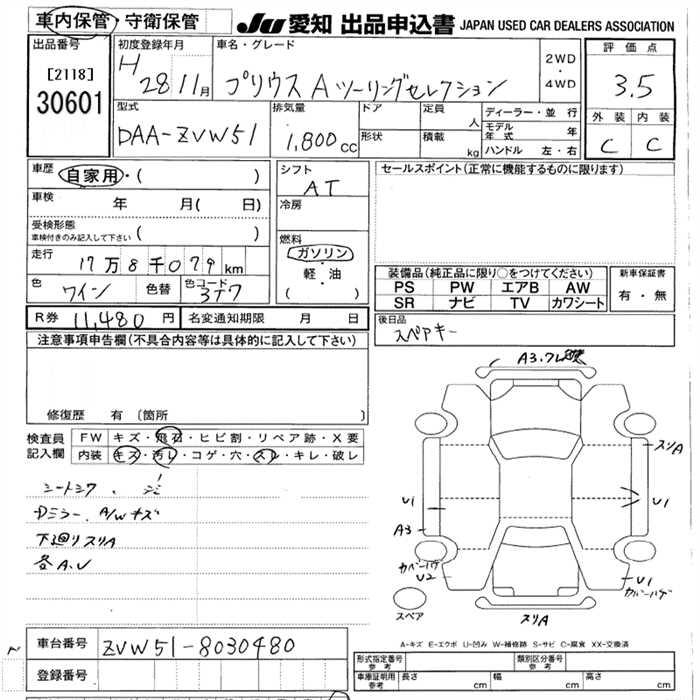 車内保管・守衛保管
JU 愛知 出品申込書 JAPAN USED CAR DEALERS ASSOCIATION
出品番号
[2118]
30601
初度登録年月
H 28年11月
車名・グレード
プリウス Aツーリングセレクション
2WD
・
4WD
評価点
3.5
外装 内装
C C
型式
DAA-ZVW51
排気量
1,800cc
ドア
形状
定員
人
積載
kg
ディーラー・並行
モデル年式 年
ハンドル 左・右
車歴
自家用・( )
車検
年 月( 日)
受検形態
車検付きのみ記入して下さい ( )
走行
17万8千079km
色
ワイン
色替
色コード
3T7
シフト
AT
冷房
燃料
ガソリン
・
軽・油
( )
セールスポイント(正常に機能するものに限ります)
装備品(純正品に限り○をつけてください)
PS PW エアB AW
SR ナビ TV カワシート
新車保証書
有・無
R券 11,480円
名変通知期限 月 日
後日品
スペアキー
注意事項申告欄(不具合内容等は具体的に記入して下さい)
修復歴 有 〔箇所
検査員
記入欄
FW キズ・飛石・ヒビ割・リペア跡・X要
内装 キズ・汚レ・コゲ・穴・スレ・キレ・破レ
シートシワ、
Dミラー、A/Wキズ
下廻りスリA
各A.U
A3.
スリA
U1
U1
A3
カバーハゲ
U2
U1
カバーハゲ
スペア
スリA
A-キズ E-エクボ U-凹み W-補修跡 S-サビ C-腐食 XX-交換済
車台番号 ZVW51-8030480
登録番号
形式指定番号
参考
類別区分番号
参考
車庫証明用
参考
長さ cm 幅 cm 高さ cm